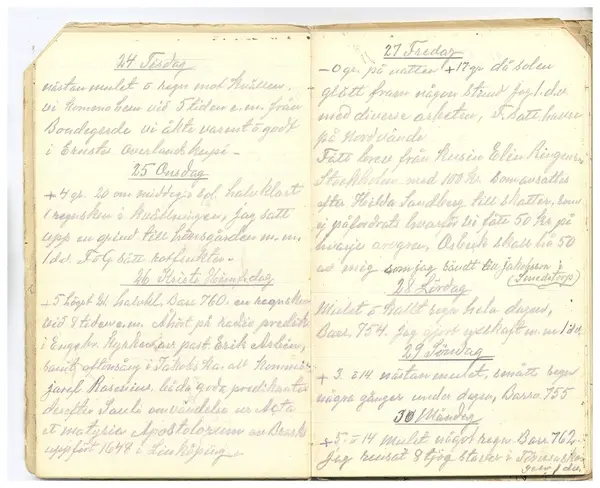 24 Tisdag
nästan mulet o regn mot kvällen.
vi kommo hem vid 5 tiden e.m. från
Bondegerde vi åkte varmt o godt
i Ernsts Overlandskupé -
25 Onsdag
+4 gr. 20 om middag o sol halvklart
i regnsken i kvällningen, jag satt
upp en grind till hönsgården m.m.
1 dv. F o G satte rotfrukter.
26 Kristi Himm.dag
+5 högst 21 halvkl. Baro 760. en regnskur
vid 8 tiden e.m. Åhört på radio predik
i Engelbr. Kyrkan av past Erik
samt aftonsång i Jakobs ka. av Kommin
båda goda predikanter
derefter Sauls omvändelse ur Acta
et Apostolorum av
uppfört 1648 i Linköping
27 Fredag
-0 gr. på natten +17 gr då solen
glött fram någon stund Jag 1 dv.
med diverse arbeten, F satt havre
på Nordvände
Fått brev från Kusin Elin
Stockholm med 100 kr som avsattes
efter Hilda Sandberg till skatter, som
ej påfordrats hvarför vi fått 50 kr på
hvarje arvgren, Osbecks skall hå 50
av mig som jag sändt till Jakobson i
(Smedstorp)
28 Lördag
Mulet o kallt regn hela dagen,
Baro, 754. Jag gjort redskaft m.m 1 dv.
29 Söndag
+3. o 14. nästan mulet, smått regn
några gånger under dagen, Baro. 755
30 Måndag
+5 - o 14 mulet något regn Baro 762.
Jag rensat 8 tjog starr i